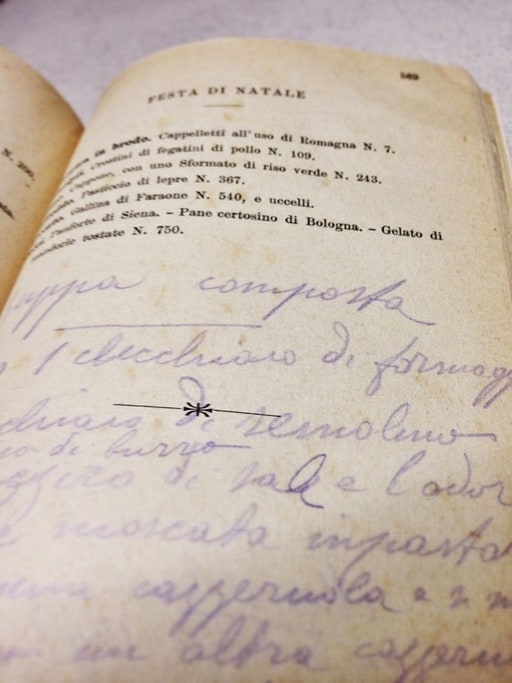 569
FESTA DI NATALE
in brodo. Cappelletti all'uso di Romagna N. 7.
Crostini di fegatini di pollo N. 109.
Cappone, con uno Sformato di riso verde N. 243.
Pasticcio di lepre N. 367.
Gallina di Faraone N. 540, e uccelli.
Panforte di Siena. – Pane certosino di Bologna. – Gelato di
tostate N. 750.
N.
uppa composta
1 cucchiaio di formagg
chiaio di semolino
di burro
di sale e l'odor
moscata inpasta
cazzeruola
un altra cazzeru